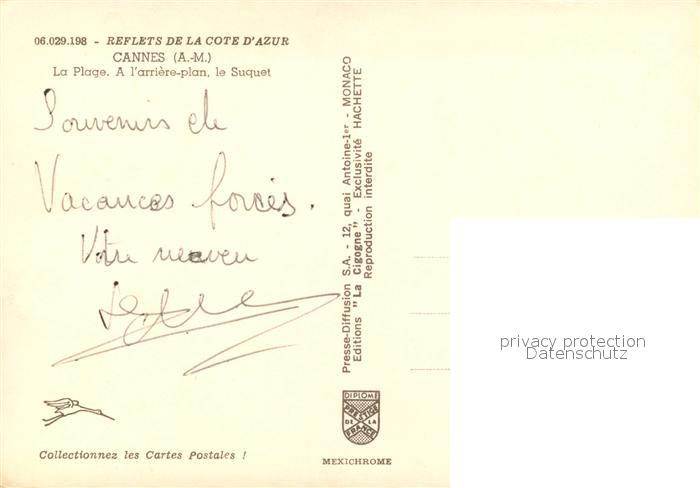 06.029.198 - REFLETS DE LA COTE D'AZUR
CANNES (A.-M.)
La Plage. A l'arrière-plan, le Suquet
Souvenirs de
Vacances forcés.
Votre neveu
Collectionnez les Cartes Postales !
Presse-Diffusion S.A. - 12, quai Antoine-1er - MONACO
Editions "La Cigogne" - Exclusivité HACHETTE
Reproduction interdite
DIPLOME
PRESTIGE
DE LA
FRANCE
MEXICHROME
privacy protection
Datenschutz